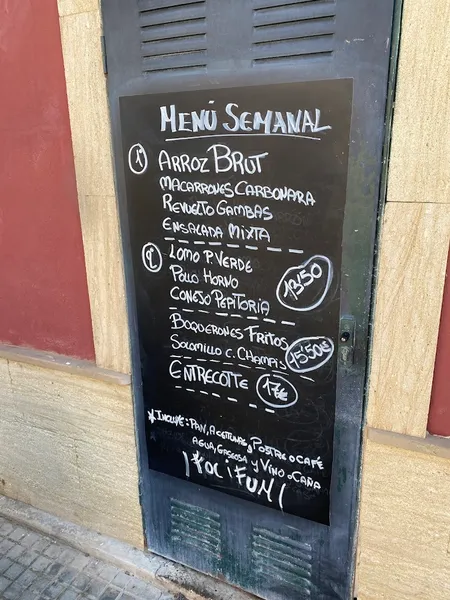 MENÚ SEMANAL
1º ARROZ BRUT
MACARRONES CARBONARA
REVUELTO GAMBAS
ENSALADA MIXTA
2º LOMO P. VERDE
POLLO HORNO
CONEJO PEPITORIA
13'50
BOQUERONES FRITOS
SOLOMILLO C. CHAMPIS
15'50€
ENTRECOTTE 17€
*INCLUYE: PAN, ACEITUNAS, Y POSTRE O CAFÉ
AGUA, GASEOSA Y VINO O CAÑA
¡FOC i FUM!